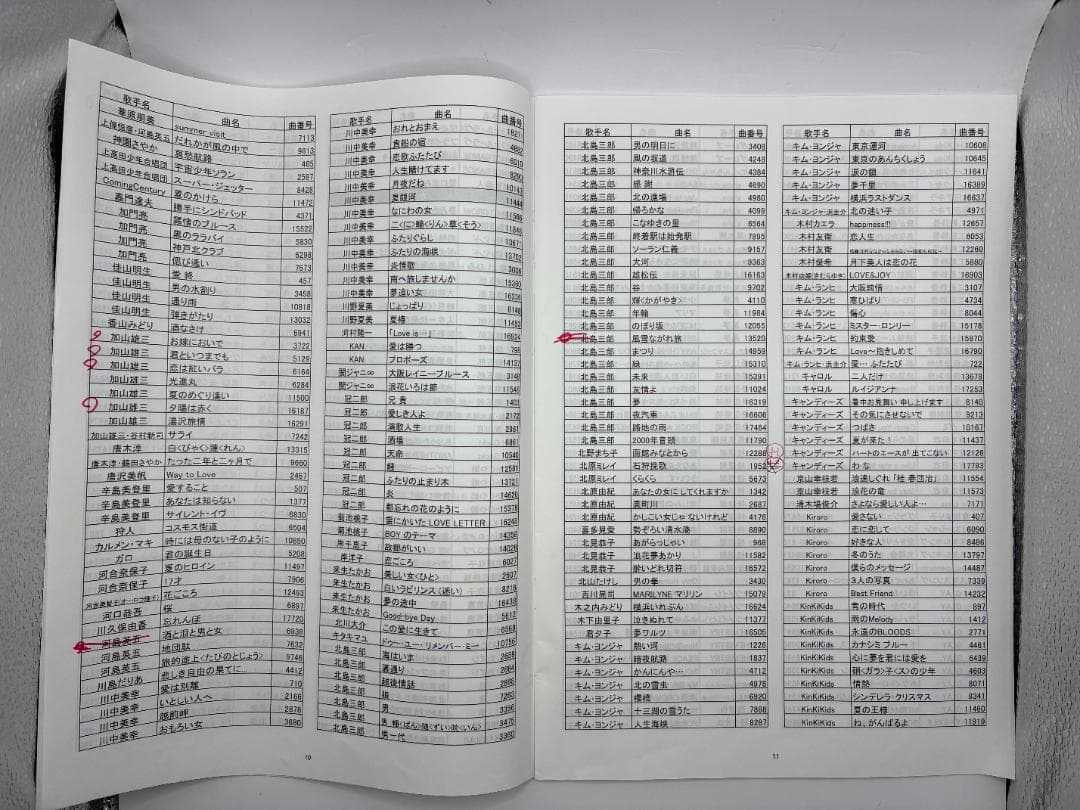 歌手名 曲名 曲番号
華原朋美 summer_visit 7113
上條恒彦・河島英五 だれかが風の中で 9813
神園さやか 哀愁航路 465
上高田少年合唱団 宇宙少年ソラン 2597
上高田少年合唱団 スーパー・ジェッター 8428
ComingCentury 夏のかけら 11472
嘉門達夫 勝手にシンドバッド 4371
加門亮 霧情のブルース 15522
加門亮 男のララバイ 5830
加門亮 神戸北クラブ 6298
加門亮 偲び逢い 7673
佳山明生 愛終 457
佳山明生 男の水割り 3458
佳山明生 通り雨 10818
佳山明生 弾きがたり 13032
香山みどり 酒なさけ 6941
加山雄三 お嫁においで 3722
加山雄三 君といつまでも 5129
加山雄三 恋は紅いバラ 6164
加山雄三 光進丸 6284
加山雄三 夏のめぐり逢い 11500
加山雄三 夕陽は赤く 16187
加山雄三 湯沢旅情 16291
加山雄三・谷村新司 サライ 7242
唐木淳 白<びゃく>蓮<れん> 13315
唐木淳・鶴田さやか たった二年と二ヶ月で 9660
唐沢美帆 Way to Love 2467
辛島美登里 愛すること 507
辛島美登里 あなたは知らない 1377
辛島美登里 サイレント・イヴ 6830
狩人 コスモス街道 6504
カルメン・マキ 時には母のない子のように 10650
ガロ 君の誕生日 5208
河合奈保子 夏のヒロイン 11497
河合奈保子 17才 7906
花ごころ 12493
河口恭吾 桜 6897
川久保由香 忘れんぼ 17720
河島英五 酒と泪と男と女 6938
河島英五 地団駄 7632
河島英五 旅的途上<たびのとじょう> 9746
川島だりあ 悲しき自由の果てに… 4412
川中美幸 愛は別離 710
川中美幸 いとしい人へ 2166
川中美幸 隠岐岬 2878
川中美幸 おもろい女 3680
歌手名 曲名 曲番号
川中美幸 おれとおまえ
川中美幸 貴船の宿
川中美幸 恋歌ふたたび
川中美幸 人生賭けてます
川中美幸 月夜だね 10143
川中美幸 夏銀河 11444
川中美幸 なにわの女
川中美幸 二<に>輪<りん>草<そう>
川中美幸 ふたりぐらし 13671
川中美幸 ふたりの海峡 13702
川中美幸 炎情歌
川中美幸 南へ旅しませんか
川中美幸 夢追い女
川野夏美 じょっぱり 8148
川野夏美 夏椿 11452
河村隆一 「Love is…」 16924
KAN 愛は勝つ 798
KAN プロポーズ 14137
関ジャニ∞ 大阪レイニーブルース 3148
関ジャニ∞ 浪花いろは節 11546
冠二郎 兄貴 1403
冠二郎 愛しき人よ 2172
冠二郎 演歌人生 2981
冠二郎 酒場
冠二郎 天命 10540
冠二郎 12581
冠二郎 ふたりの止まり木 13721
冠二郎 炎 14620
冠二郎 都忘れの花のように 15378
菊池桃子 雪にかいた LOVE LETTER 16248
菊地桃子 BOY のテーマ 14358
岸千恵子 故郷がいい 14028
岸洋子 恋ごころ 6027
来生たかお 美しい女<ひと> 2807
来生たかお 白いラビリンス (迷い) 8218
来生たかお 夢の途中 16438
来生たかお Good-bye Day 5612
北川大介 この愛に生きて 6568
キタキマユ ドゥー・ユー・リメンバー・ミー 10756
北島三郎 海はいま 2658
北島三郎 裏通り 2664
北島三郎 越後情話 2866
北島三郎 狼 7260
北島三郎 男 3356
北島三郎 3475
北島三郎 男一代 3360
10
歌手名 曲名 曲番号
北島三郎 男の明日に 3408
北島三郎 風の坂道 4248
北島三郎 神奈川水滸伝 4384
北島三郎 感謝 4690
北島三郎 北の漁場 4980
北島三郎 帰ろかな 4099
北島三郎 こなゆきの里 6564
北島三郎 終着駅は始発駅 7895
北島三郎 ソーラン仁義 9157
北島三郎 大河 9363
北島三郎 雄松伝 16163
北島三郎 谷 9702
北島三郎 輝<かがやき> 4110
北島三郎 年輪 11984
北島三郎 のぼり坂 12055
北島三郎 風雪ながれ旅 13520
北島三郎 まつり 14959
北島三郎 緑 15310
北島三郎 未来 15391
北島三郎 友情よ 11024
北島三郎 夢 16319
北島三郎 夜汽車 16606
北島三郎 路地の雨 17464
北島三郎 2000年音頭 11790
北野まち子 函館みなとから 12288
北原ミレイ 石狩挽歌 1952
北原ミレイ くらくら 5673
北原由紀 あなたの女にしてくれますか 1342
北原由紀 裏町川 2687
北原由紀 かしこい女じゃないけれど 4176
喜多見愛 勢ぞろい清水湊 8890
北見恭子 あがらっしゃい 968
北見恭子 浪花夢あかり 11582
北見恭子 酔いどれ切符 16572
北山たけし 男の拳 3430
吉川晃司 MARILYNE マリリン 5079
木之内みどり 横浜いれぶん 16624
木下結子 泣きぬれて 11377
君夕子 夢ワルツ 16505
キム・ヨンジャ 熱い河 1226
キム・ヨンジャ 暗夜航路 1837
キム・ヨンジャ かんにんや… 4712
キム・ヨンジャ 北の雪虫 4978
キム・ヨンジャ 櫻桃 6920
キム・ヨンジャ 十三湖の雪うた 7888
キム・ヨンジャ 人生海峡 8287
歌手名 曲名 曲番号
キム・ヨンジャ 東京運河 10608
キム・ヨンジャ 東京のあんちくしょう 10645
キム・ヨンジャ 涙の鎖 11641
キム・ヨンジャ 夢千里 16389
キム・ヨンジャ 横浜ラストダンス 16637
キム・ヨンジャ・浜圭介 北の迷い子 4971
木村カエラ happiness!!! 12657
木村友衛 恋人生 6053
木村友衛 12260
木村優希 月下美人は恋の花 5880
木村由姫(きむらゆき) LOVE&JOY 16903
キム・ランヒ 大阪純情 3107
キム・ランヒ 寒ひばり 4734
キム・ランヒ 傷心 8044
キム・ランヒ ミスター・ロンリー 15178
キム・ランヒ 約束愛 15970
キム・ランヒ Love〜抱きしめて 16790
キム・ランヒ・浜圭介 愛…ふたたび 722
キャロル 二人だけ 13678
キャロル ルイジアンナ 17253
キャンディーズ 暑中お見舞い申し上げます 8140
キャンディーズ その気にさせないで 9213
キャンディーズ つばさ 10167
キャンディーズ 夏が来た! 11437
キャンディーズ ハートのエースが出てこない 12126
キャンディーズ わな 17793
京山幸枝若 浪速しぐれ「桂春団治」 11554
京山幸枝若 浪花の竜 11573
清木場俊介 さよなら愛しい人よ… 7171
Kiroro 愛さない 407
Kiroro 恋に恋して 6090
Kiroro 好きな人 8486
Kiroro 冬のうた 13797
Kiroro 僕らのメッセージ 14487
Kiroro 3人の写真 7339
Kiroro Best Friend 14232
KinKiKids 青の時代 897
KinKiKids 雨のMelody 1412
KinKiKids 永遠のBLOODS 2771
KinKiKids カナシミ ブルー 4461
KinKiKids 心に夢を君には愛を 6439
KinKiKids 硝<ガラ>子<ス>の少年 4603
KinKiKids 情熱 8071
KinKiKids シンデレラ・クリスマス 8341
KinKiKids 夏の王様 11460
KinKiKids ね、がんばるよ 11919
11